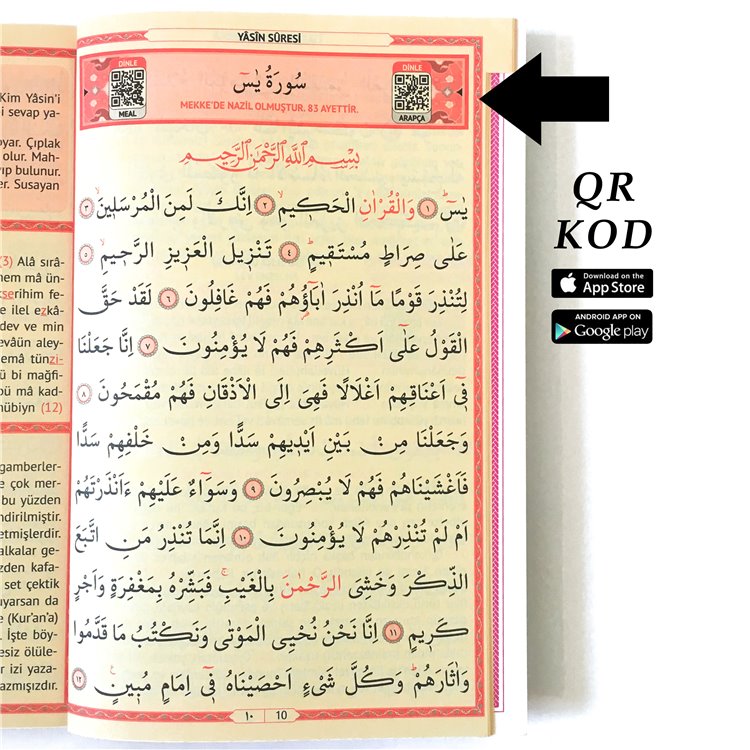 Kim Yâsin'i
i sevap ya-
yar. Çıplak
olur. Mah-
ıp bulunur.
r. Susayan
(3) Alâ sırâ-
nem mâ ün-
kserihim fe-
e ilel ezkâ-
dev ve min
evâün aley-
emâ tünzi-
ü bi mağfi-
bü mâ kad-
übiyn (12)
gamberler-
e çok mer-
bu yüzden
ndirilmiştir.
etmişlerdir.
alkalar ge-
zden kafa-
set çektik
uyarsan da
e (Kur'an'a)
. İşte böy-
esiz ölüle-
r izi yaza-
azmışızdır.
YÂSÎN SÛRESİ
DİNLE
MEAL
سُورَةُ يٰسٓ
MEKKE'DE NAZİL OLMUŞTUR. 83 AYETTİR.
DİNLE
ARAPÇA
بِسْمِ اللّٰهِ الرَّحْمٰنِ الرَّحِيمِ
يٰسٓۚ ﴿١﴾ وَالْقُرْاٰنِ الْحَكٖيمِۙ ﴿٢﴾ اِنَّكَ لَمِنَ الْمُرْسَلٖينَۙ ﴿٣﴾
عَلٰى صِرَاطٍ مُسْتَقٖيمٍؕ ﴿٤﴾ تَنْزٖيلَ الْعَزٖيزِ الرَّحٖيمِۙ ﴿٥﴾
لِتُنْذِرَ قَوْمًا مَٓا اُنْذِرَ اٰبَٓاؤُ۬هُمْ فَهُمْ غَافِلُونَ ﴿٦﴾ لَقَدْ حَقَّ
الْقَوْلُ عَلٰٓى اَكْثَرِهِمْ فَهُمْ لَا يُؤْمِنُونَ ﴿٧﴾ اِنَّا جَعَلْنَا
فٖٓي اَعْنَاقِهِمْ اَغْلَالًا فَهِيَ اِلَى الْاَذْقَانِ فَهُمْ مُقْمَحُونَ ﴿٨﴾
وَجَعَلْنَا مِنْ بَيْنِ اَيْدٖيهِمْ سَدًّا وَمِنْ خَلْفِهِمْ سَدًّا
فَاَغْشَيْنَاهُمْ فَهُمْ لَا يُبْصِرُونَ ﴿٩﴾ وَسَوَٓاءٌ عَلَيْهِمْ ءَاَنْذَرْتَهُمْ
اَمْ لَمْ تُنْذِرْهُمْ لَا يُؤْمِنُونَ ﴿١٠﴾ اِنَّمَا تُنْذِرُ مَنِ اتَّبَعَ
الذِّكْرَ وَخَشِيَ الرَّحْمٰنَ بِالْغَيْبِۚ فَبَشِّرْهُ بِمَغْفِرَةٍ وَاَجْرٍ
كَرٖيمٍ ﴿١١﴾ اِنَّا نَحْنُ نُحْيِي الْمَوْتٰى وَنَكْتُبُ مَا قَدَّمُوا
وَاٰثَارَهُمْؕ وَكُلَّ شَيْءٍ اَحْصَيْنَاهُ فٖٓي اِمَامٍ مُبٖينٍ۟ ﴿١٢﴾
١٠ 10
QR
KOD
Download on the
App Store
ANDROID APP ON
Google play